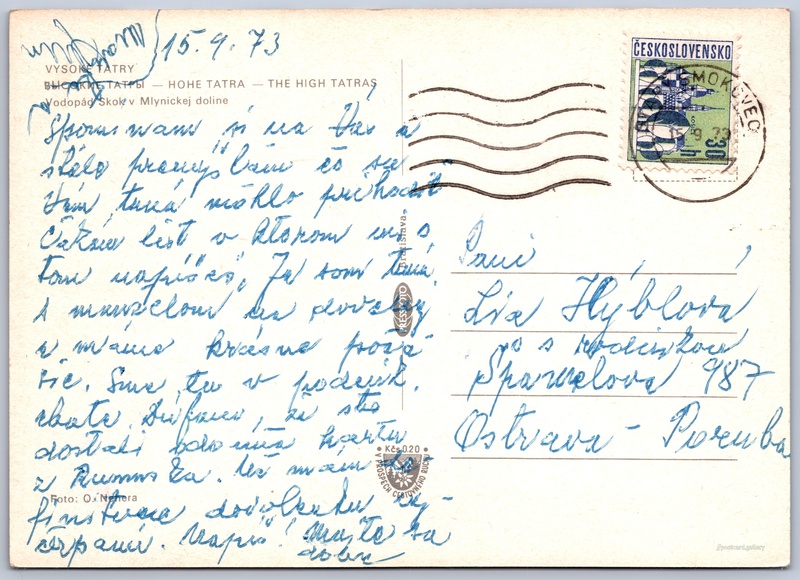 15.9.73
VYSOKÉ TATRY
ВЫСОКИЕ ТАТРЫ — HOHE TATRA — THE HIGH TATRAS
Vodopád Skok v Mlynickej doline
Spomínam si na Vás a
stále premýšlam čo sa
Vám mohlo prihodiť
Čakám list v ktorom mi o
tom napíšeš. Ja som
s manželom na dovolenke
a máme krásne počasie.
Sme tu v podnik.
chate. Dúfam, že ste
dostali odo mňa kartu
z Rumunska. Už mám
dovolenku vy-
čerpanú. Napíš! Majte sa
dobre
Foto: O. Nehera
Bratislava
PRESSFOTO
Kčs 0,20
V PROSPECH CESTOVNÉHO RUCHU
ČESKOSLOVENSKO
30 h
SMOKOVEC
15.-9.73
Pani
Lia Hýblová
s rodinkou
987
Ostrava - Poruba
@postcard.gallery